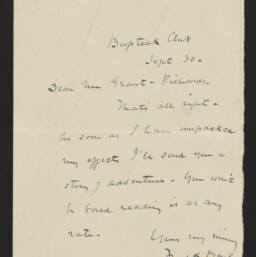 Beefsteak Club
Sept 30.
Dear Mr Grant-Richards.
That's all right -
as soon as I have unpacked
my effects I'll send you a
story of adventure - You won't
be bored reading it at any
rate.
Yours very sincerely